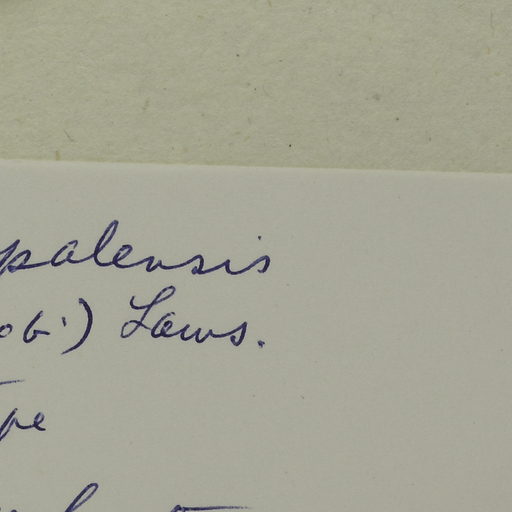 palensis
ob.) Laws.
pe